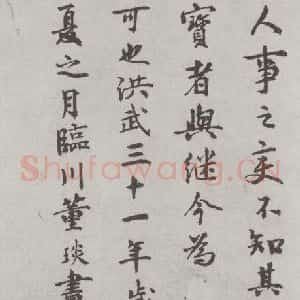 人事之变不知其
寶者與继今為
可也洪武三十一年歲
夏之月臨川董琰書
Shufawang.CN